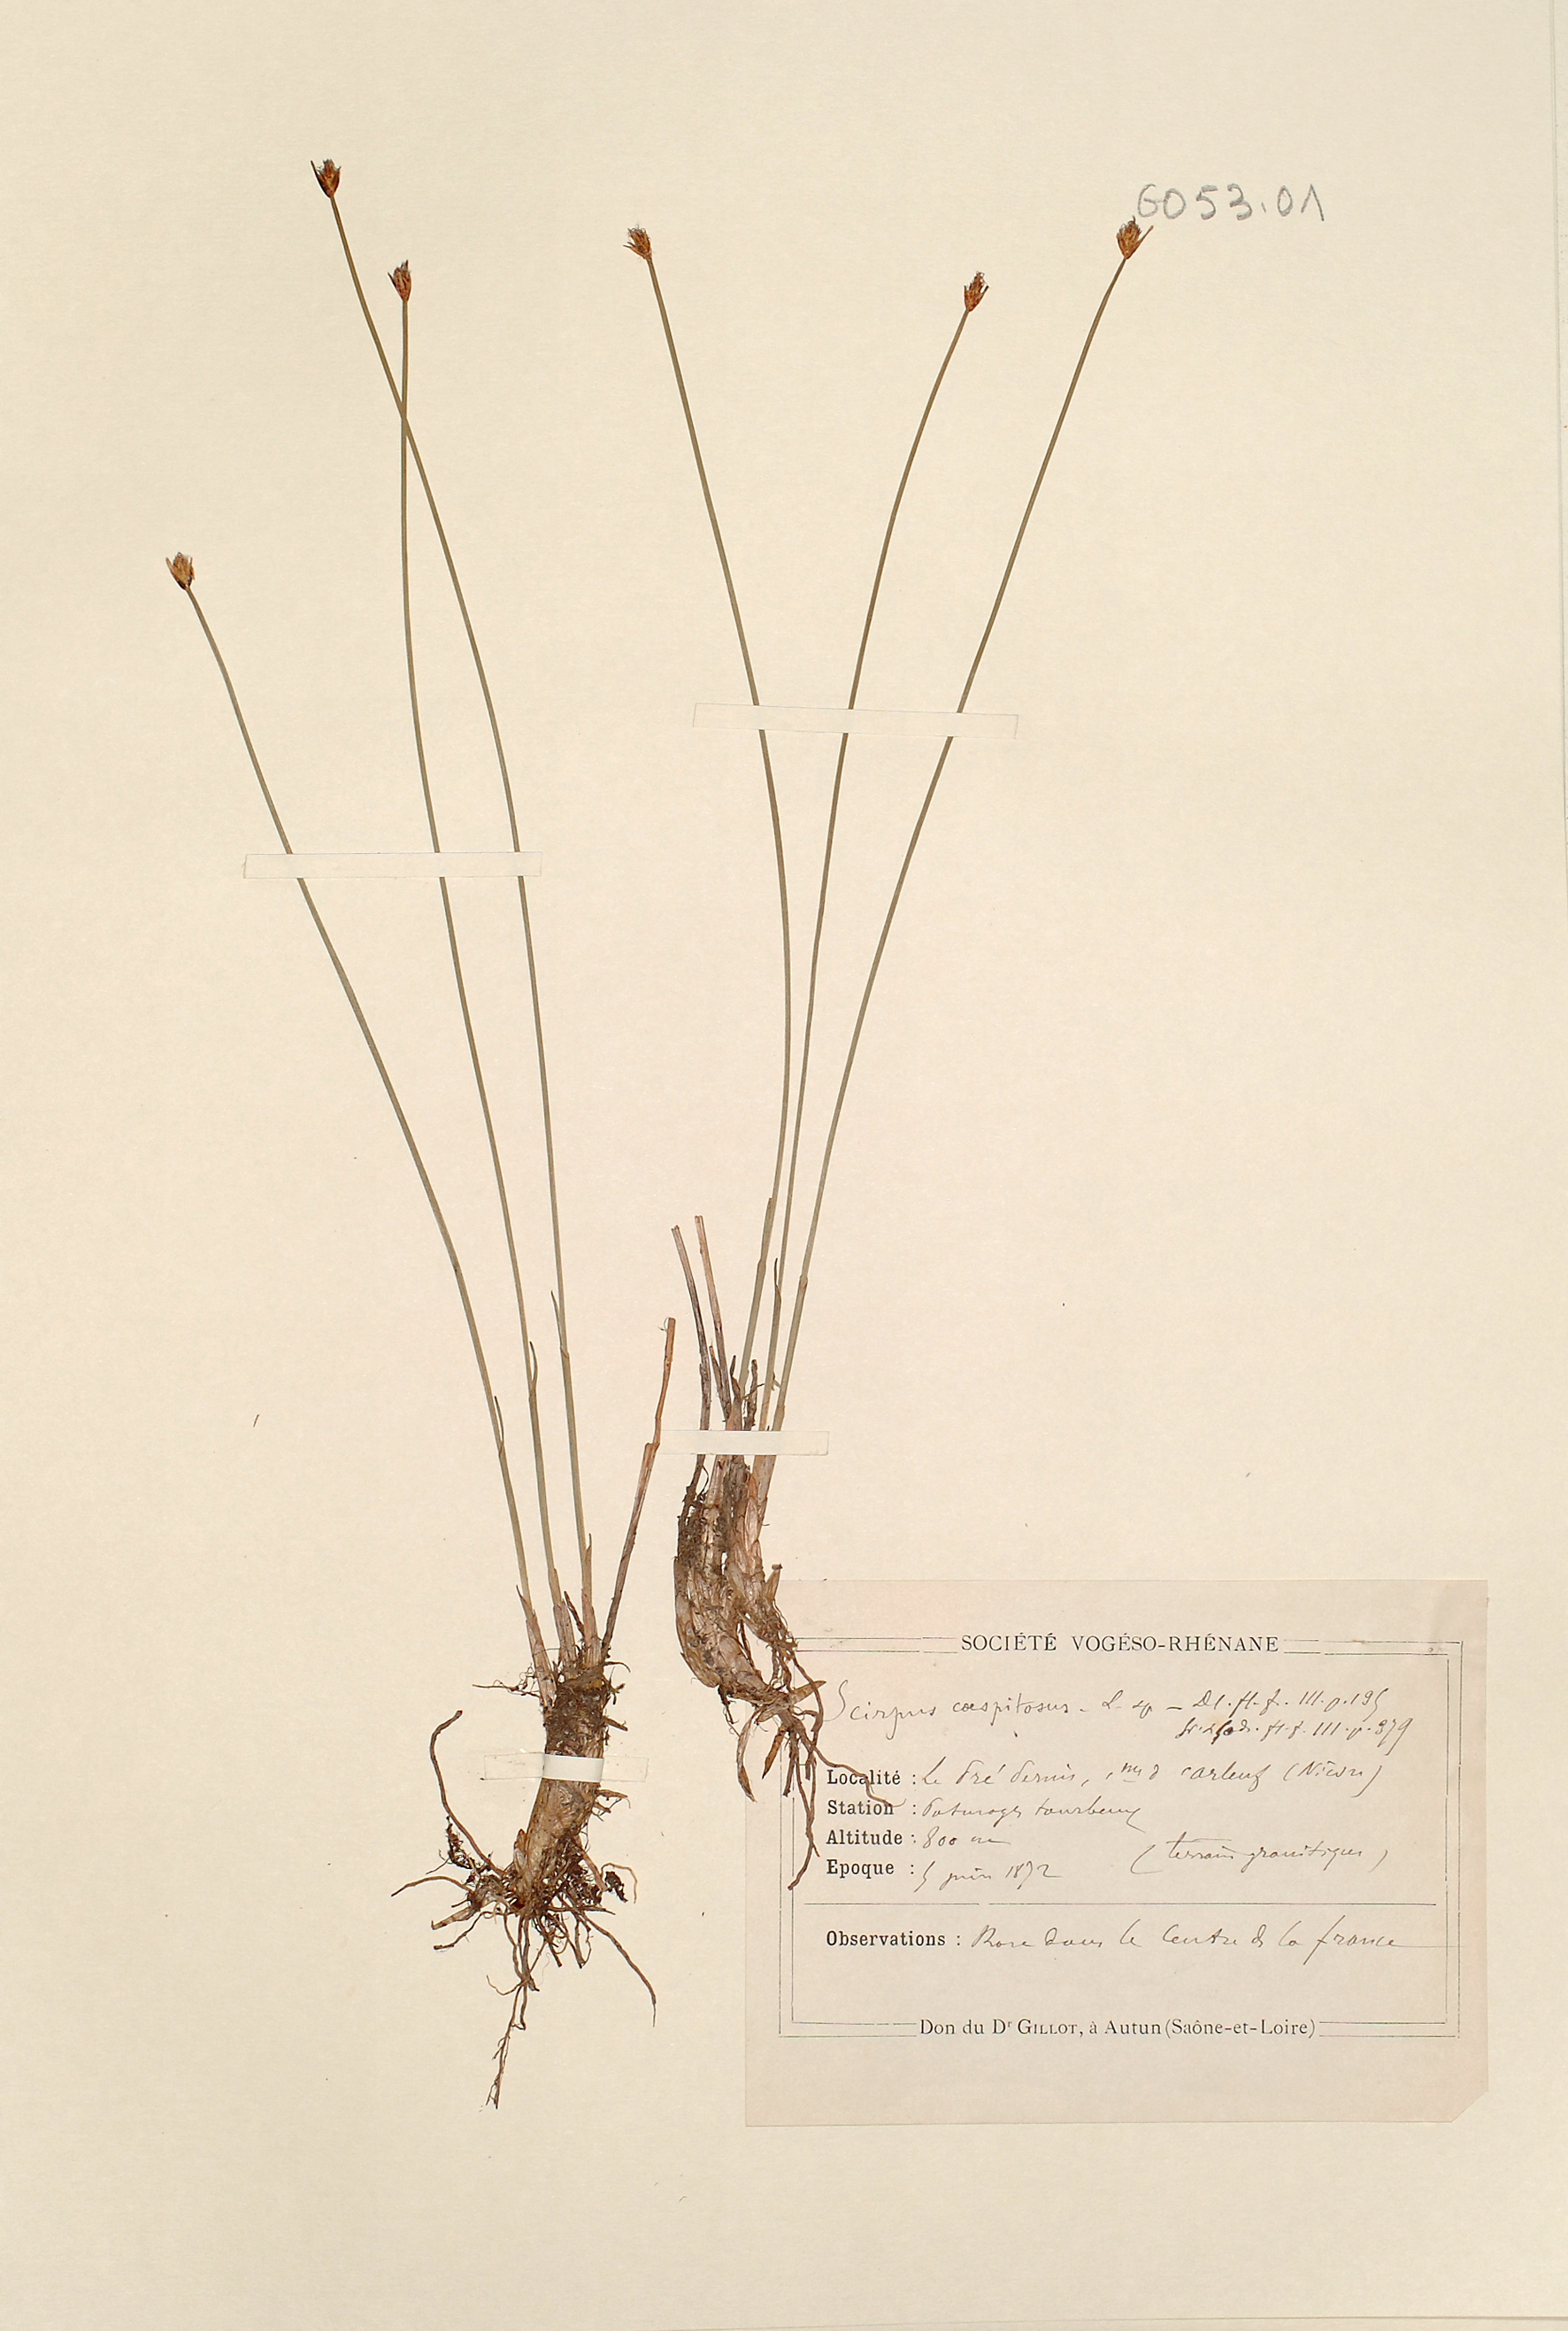 6053.01
SOCIÉTÉ VOGÉSO-RHÉNANE
Scirpus cæspitosus - L. sp - DC. fl. fr. III. p. 195
fl. f. III. p. 379
Localité : Le Pré (Nièvre)
Station : Paturages tourbeux
Altitude : 800 m
(terrain granitique)
Epoque : 5 juin 1872
Observations : Rare dans le Centre de la france
Don du Dr GILLOT, à Autun (Saône-et-Loire)